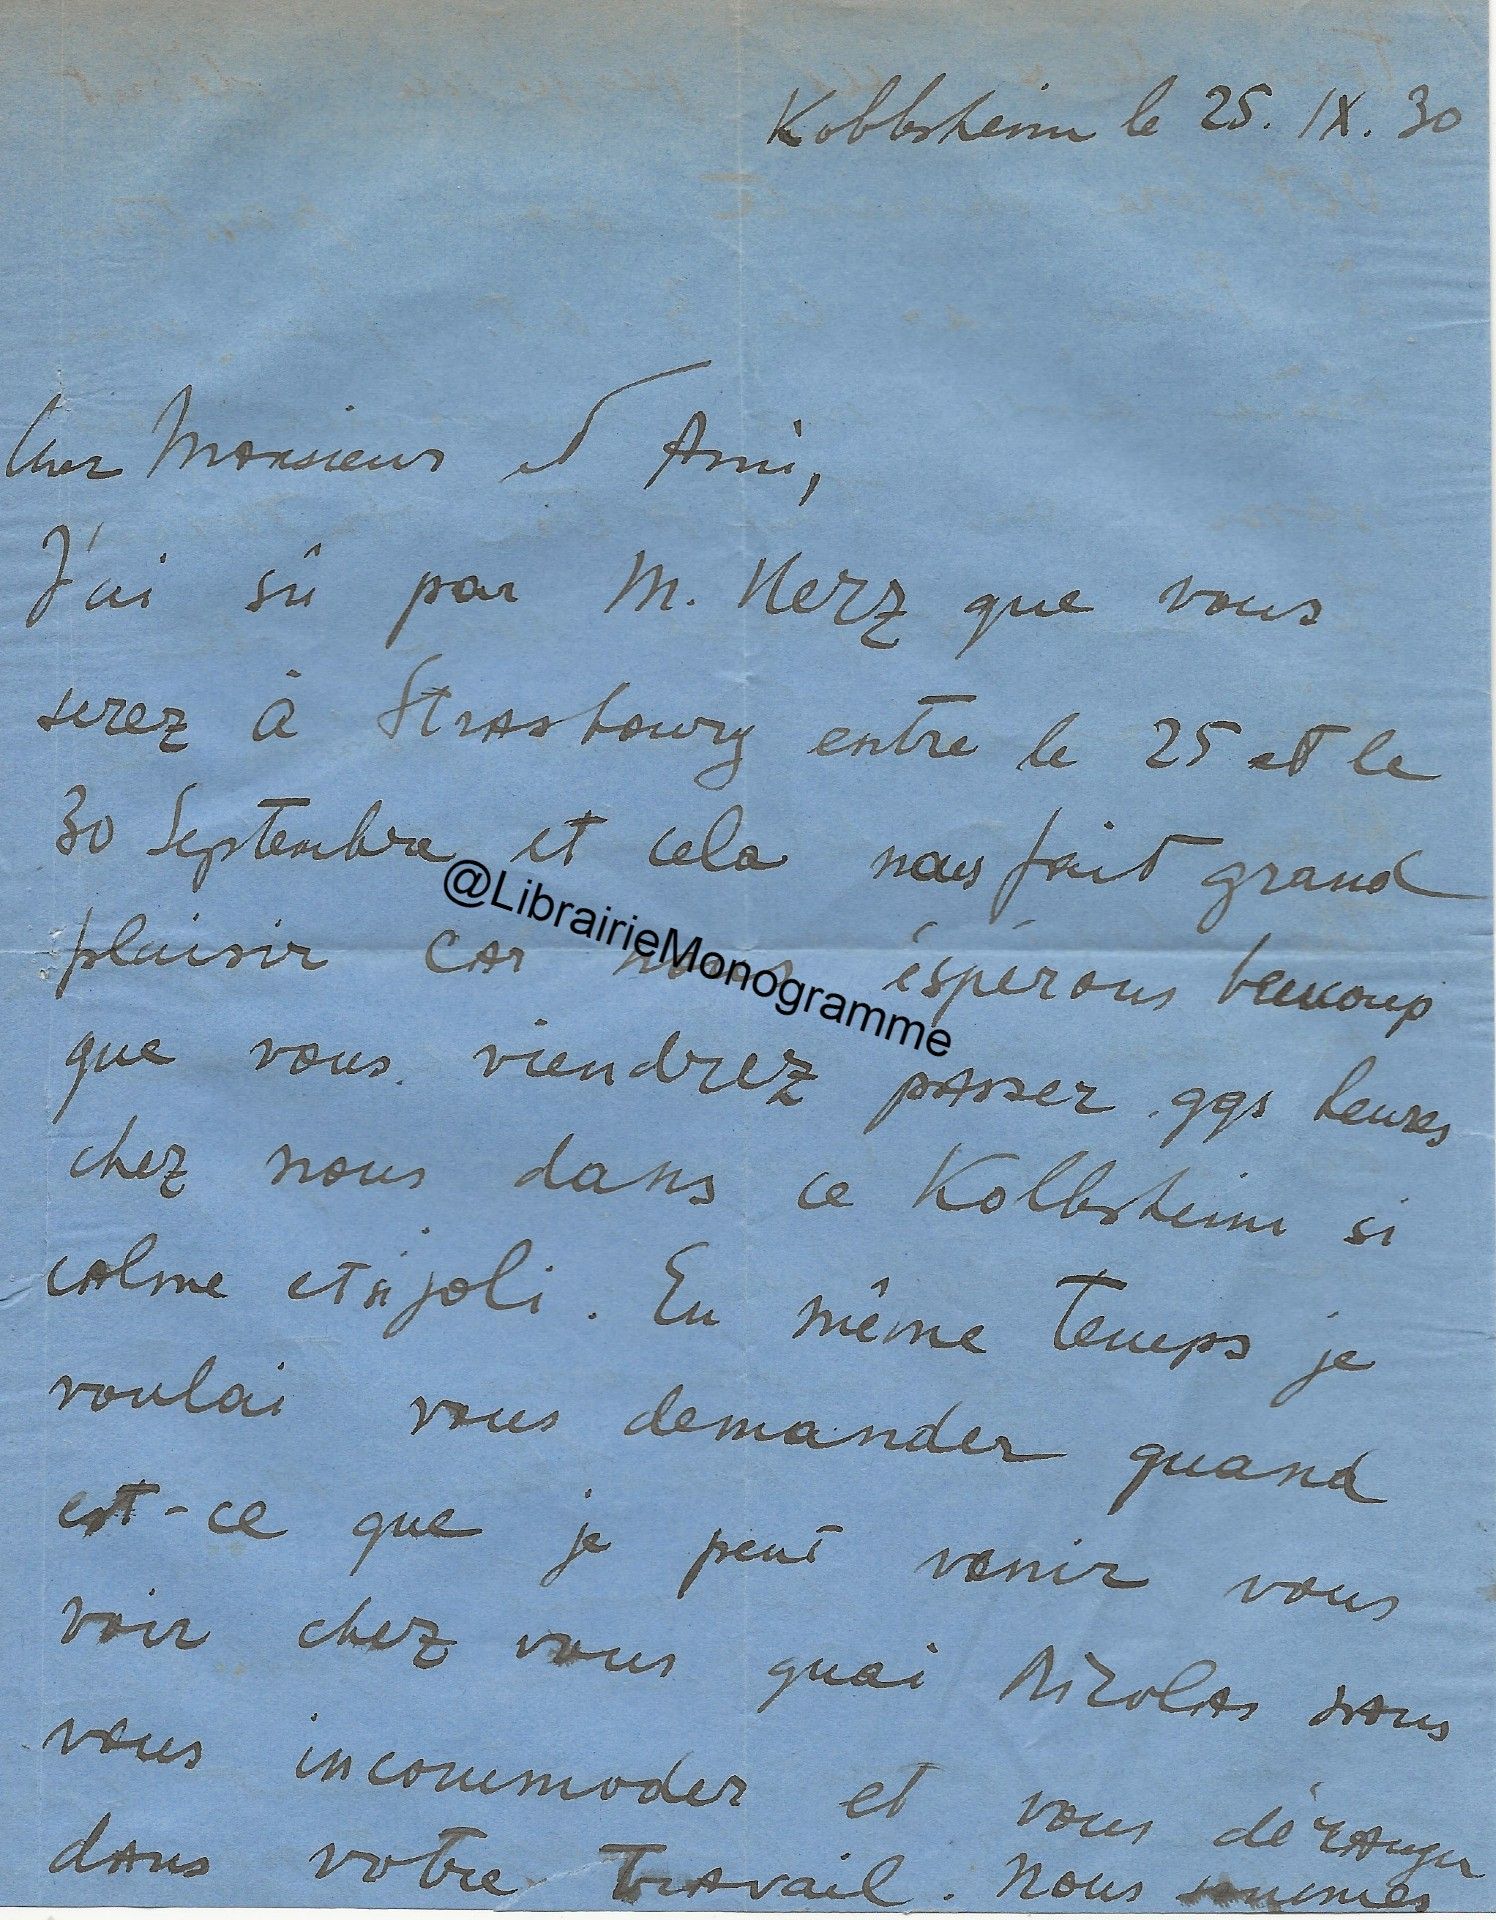 Kolbsheim le 25. IX. 30
Cher Monsieur et Ami,
J'ai sû par M. Herz que vous
serez à Strasbourg entre le 25 et le
30 Septembre et cela nous fait grand
plaisir car nous éspérons beaucoup
@LibrairieMonogramme
que vous viendrez passer qqs heures
chez nous dans ce Kolbsheim si
calme et si joli. En même temps je
voulai vous demander quand
est-ce que je peut venir vous
voir chez vous quai Nicolas sans
vous incommoder et vous déranger
dans votre travail. Nous sommes